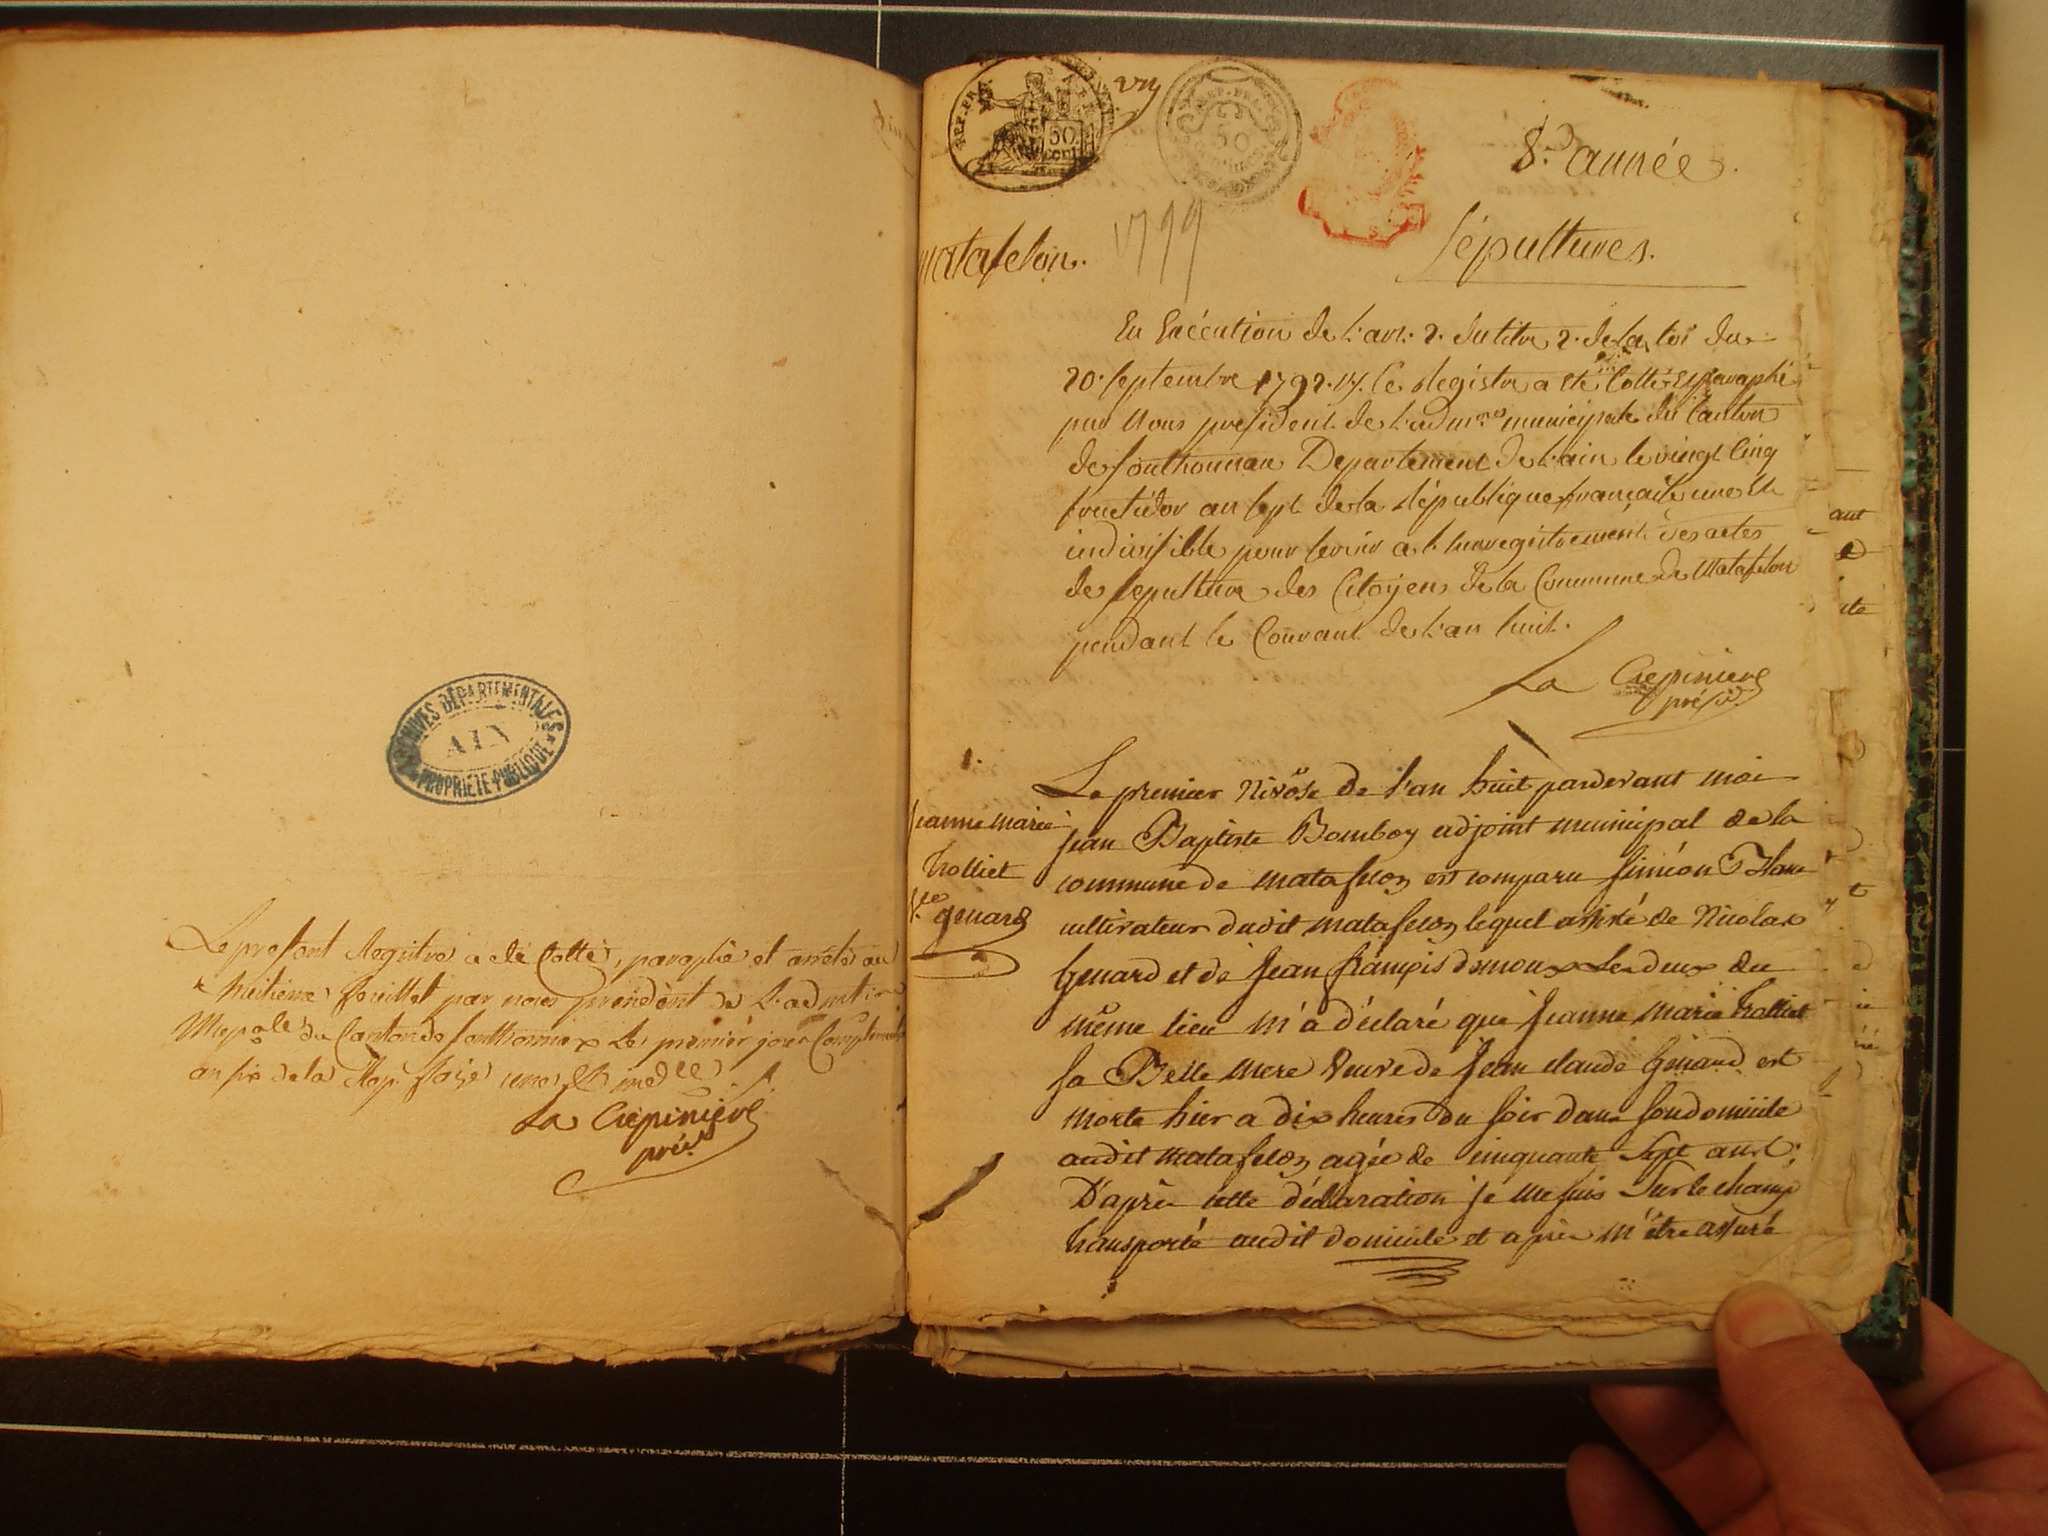 ARCHIVES DÉPARTEMENTALES
AIN
PROPRIÉTÉ PUBLIQUE
Le present Registre a eté Cotté, paraphé et arrêté au
huitieme feuillet par nous president de L'adm
Mcpale du Canton de Sonthonnax Le premier jour Complement
an six de la Rep. fçaise une et indlle
La Crepiniere
prést
REP. FRA.
50
cent.
REP. FRA.
50
8e année.
1799
matafelon.
Sépultures.
En Exécution de l'art. 2. du titre 2. de la loi du
20. Septembre 1792. le Registre a eté Cotté et paraphé
par Nous president de l'admon municipale du Canton
de Sonthonnax Departement de l'ain le vingt Cinq
fructidor an sept de la République française une et
indivisible pour servir a l'enregistrement des actes
de Sepulture des Citoyens de la Commune de Matafelon
pendant le Courant de l'an huit.
La Crepiniere
présid
1.
Le premier Nivôse de l'an huit pardevant moi
Jeanne marie
jean Baptiste Bomboy adjoint municipal de la
trolliet
commune de matafelon est comparu siméon
ve genard
cultivateur dudit matafelon lequel assisté de Nicolas
Genard et de jean françois demoux les deux du
même lieu m'a déclaré que jeanne marie trolliet
sa Belle mere veuve de jean claude Genard est
morte hier a dix heures du soir dans son domicile
audit matafelon agée de cinquante sept ans.
D'après cette déclaration je me suis sur le champ
transporté audit domicile et après m'être assuré